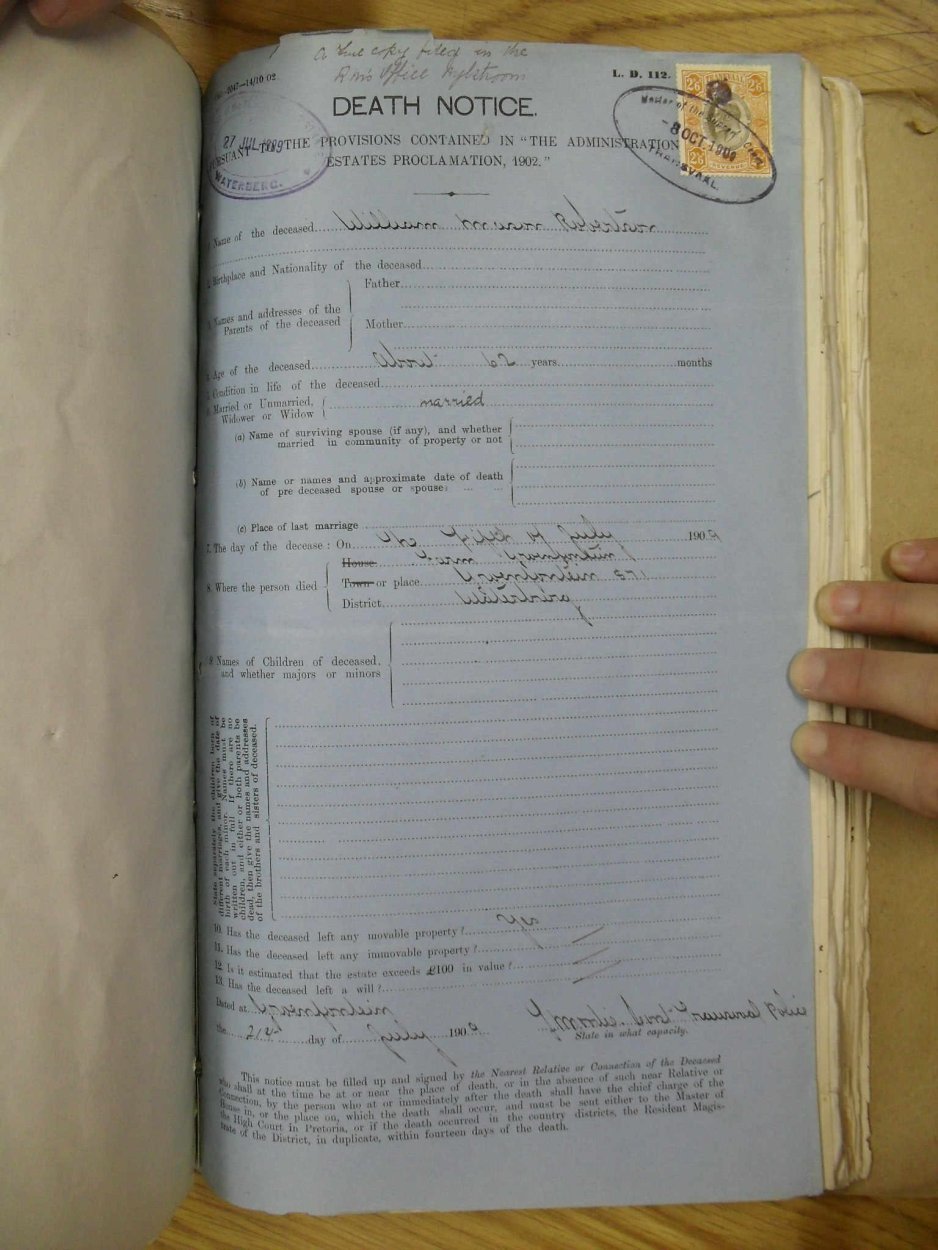 a true copy filed in the
RM's Office Nylstroom
2047—14/10/02
L. D. 112.
DEATH NOTICE.
27 JUL 1909
WATERBERG.
TRANSVAAL
2/6 2/6
REVENUE
2/6 2/6
Master of the Supreme Court
- 8 OCT 1909
TRANSVAAL.
PURSUANT TO THE PROVISIONS CONTAINED IN "THE ADMINISTRATION
ESTATES PROCLAMATION, 1902."
Name of the deceased William Robertson
Birthplace and Nationality of the deceased
Names and addresses of the
Parents of the deceased
Father
Mother
Age of the deceased About 62 years months
Condition in life of the deceased
Married or Unmarried,
Widower or Widow
married
(a) Name of surviving spouse (if any), and whether
married in community of property or not
(b) Name or names and approximate date of death
of pre deceased spouse or spouse;
(c) Place of last marriage
7. The day of the decease: On The of July 1909
8. Where the person died
House Farm
Town or place 571
District Waterberg
9. Names of Children of deceased,
and whether majors or minors
State separately the children born of
different marriages, and give the date of
birth of each minor. Names must be
written out in full. If there are no
children, and either or both parents be
dead, then give the names and addresses
of the brothers and sisters of deceased.
10. Has the deceased left any movable property? Yes
11. Has the deceased left any immovable property?
12. Is it estimated that the estate exceeds £100 in value?
13. Has the deceased left a will?
Dated at
the 21st day of July 1909
Transvaal Police
State in what capacity.
This notice must be filled up and signed by the Nearest Relative or Connection of the Deceased
who shall at the time be at or near the place of death, or in the absence of such near Relative or
Connection, by the person who at or immediately after the death shall have the chief charge of the
House in, or the place on, which the death shall occur, and must be sent either to the Master of
the High Court in Pretoria, or if the death occurred in the country districts, the Resident Magis-
trate of the District, in duplicate, within fourteen days of the death.